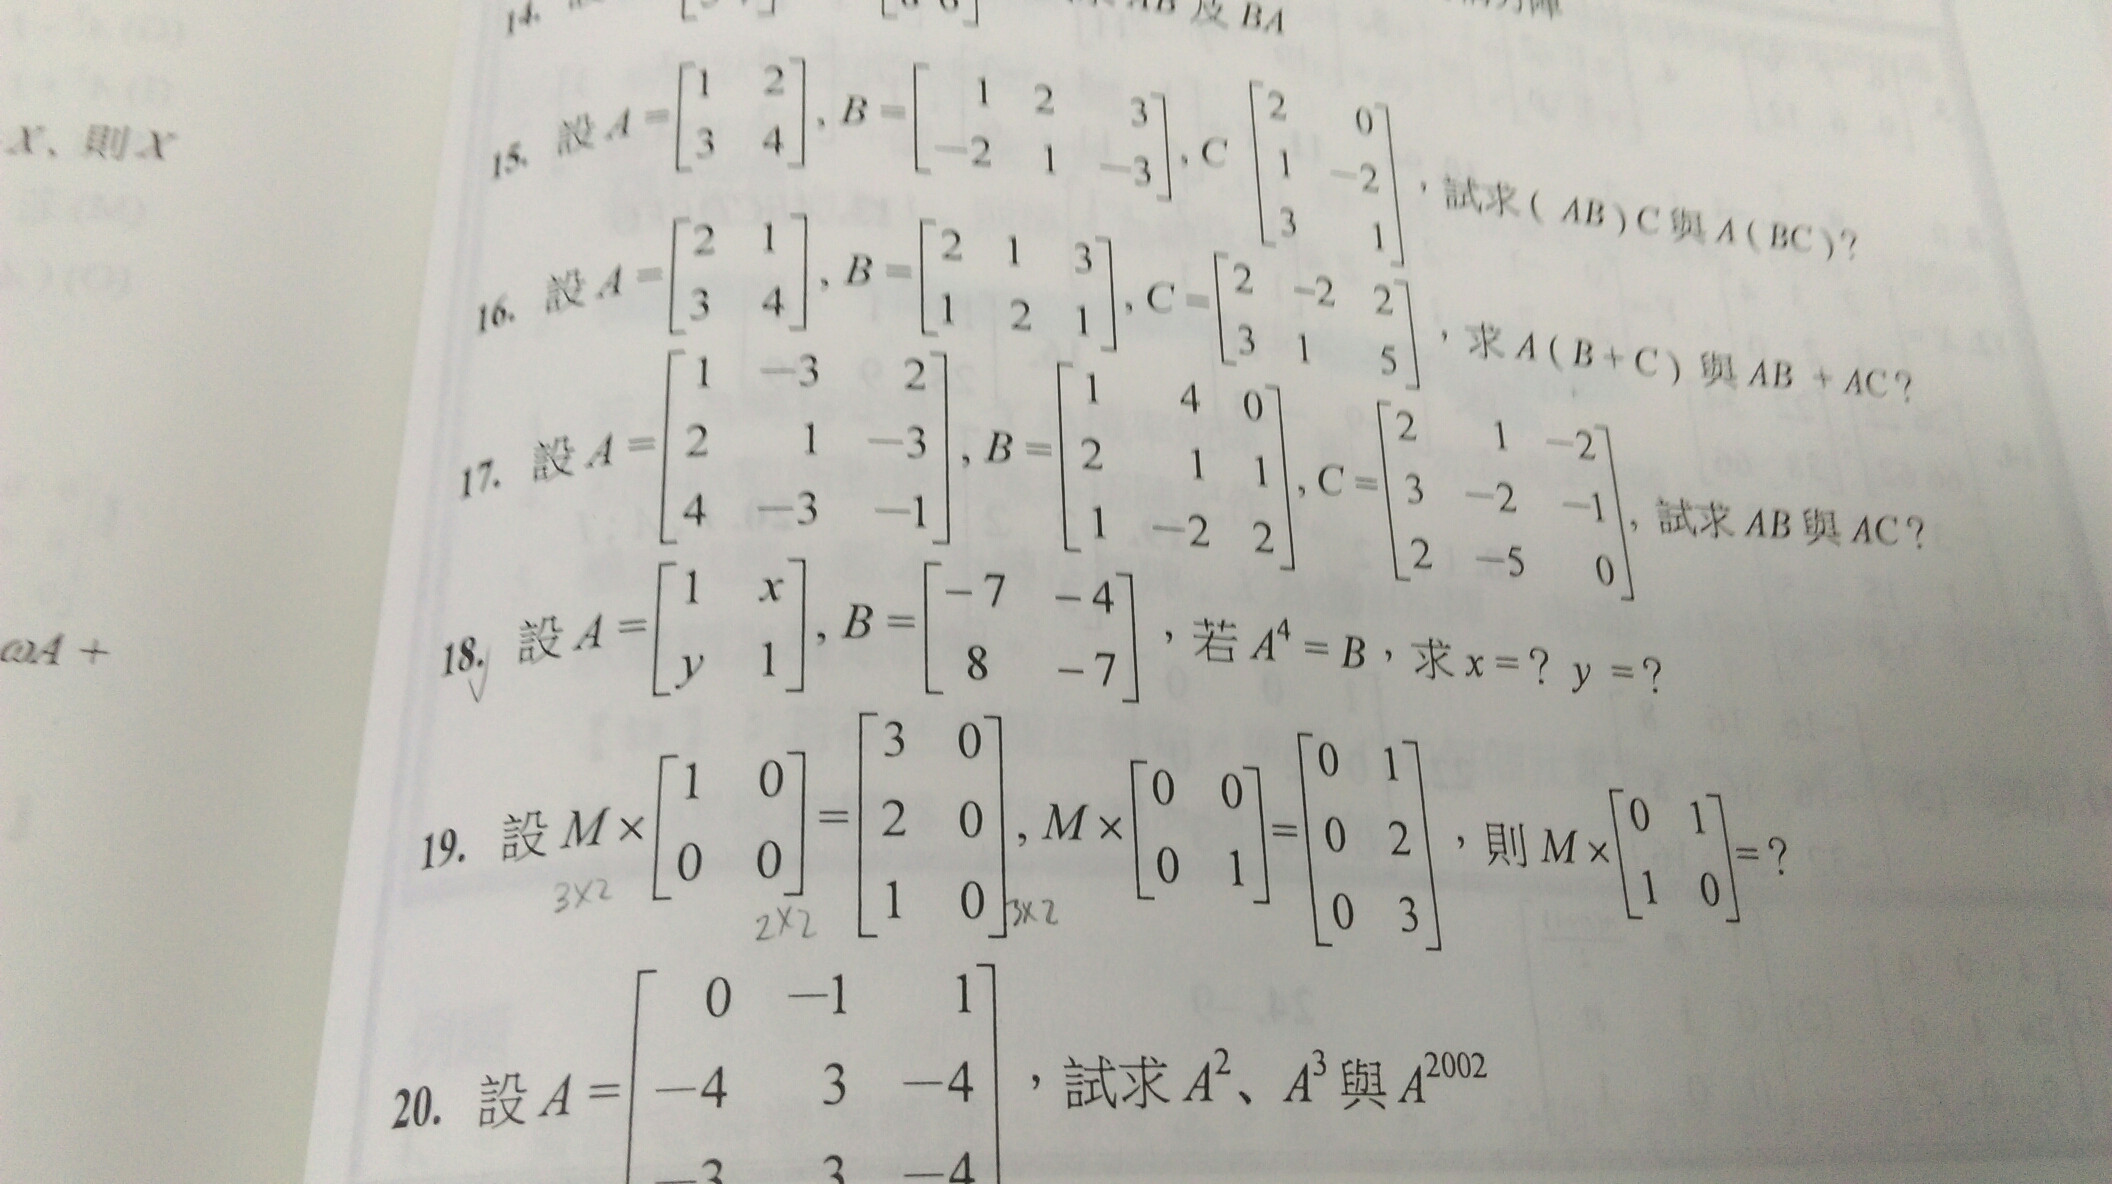 14. AB 及 BA
X、則 X
15. 設 A = [1 2; 3 4], B = [1 2 3; −2 1 −3], C [2 0; 1 −2; 3 1],試求( AB ) C 與 A ( BC )?
16. 設 A = [2 1; 3 4], B = [2 1 3; 1 2 1], C = [2 −2 2; 3 1 5],求 A ( B + C ) 與 AB + AC ?
17. 設 A = [1 −3 2; 2 1 −3; 4 −3 −1], B = [1 4 0; 2 1 1; 1 −2 2], C = [2 1 −2; 3 −2 −1; 2 −5 0], 試求 AB 與 AC ?
18. 設 A = [1 x; y 1], B = [−7 −4; 8 −7],若 A⁴ = B,求 x = ? y = ?
ωA +
19. 設 M × [1 0; 0 0] = [3 0; 2 0; 1 0], M × [0 0; 0 1] = [0 1; 0 2; 0 3],則 M × [0 1; 1 0] = ?
3×2 2×2 3×2
20. 設 A = [0 −1 1; −4 3 −4; −3 3 −4],試求 A²、A³ 與 A²⁰⁰²